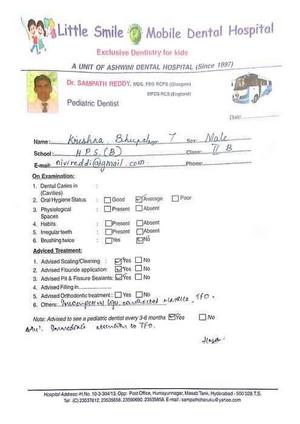 Little Smile Mobile Dental Hospital
Exclusive Dentistry for kids
A UNIT OF ASHWINI DENTAL HOSPITAL (Since 1997)
Dr. SAMPATH REDDY, MDS, FDS RCPS (Glasgow)
MFDS RCS (England)
Pediatric Dentist
Date:
Name: Krishna 7 Sex: Male
School: H.P.S. (B) Class: II B
E-mail: nivireddi@gmail.com
On Examination:
1. Dental Caries in :
(Cavities)
2. Oral Hygiene Status : Good Average Poor
3. Physiological : Present Absent
Spaces
4. Habits : Present Absent
5. Irregular teeth : Present Absent
6. Brushing twice : Yes No
Adviced Treatment:
1. Advised Scaling/Cleaning : Yes No
2. Advised Flouride application: Yes No
3. Advised Pit & Fissure Sealants: Yes No
4. Advised Filling in
5. Advised Orthodontic treatment : Yes No
6. Others: Incompetent lips, TFO.
Note: Advised to see a pediatric dentist every 3-6 months Yes No
Adv: Immediate attention to TFO.
Hospital Address: H.No. 10-3-304/13, Opp: Post Office, Humayunnagar, Masab Tank, Hyderabad - 500 028 T.S.
Tel: (C) 23537612, 23535658, 23590690, 23535858, E-mail: sampathcheruku@yahoo.com